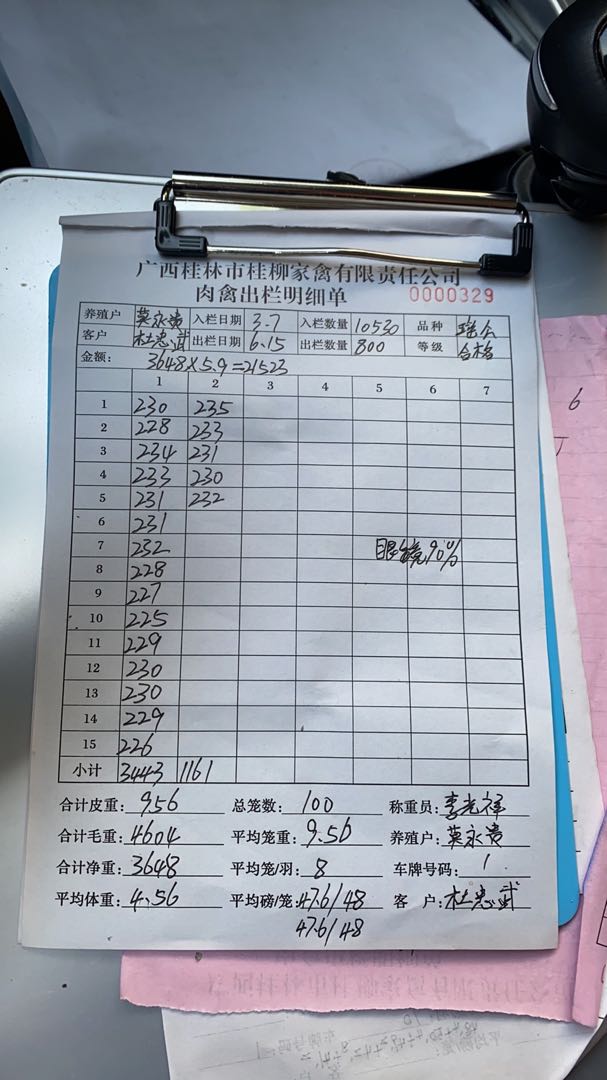 广西桂林市桂柳家禽有限责任公司
肉禽出栏明细单 0000329
养殖户 莫永贵 入栏日期 3.7 入栏数量 10530 品种 瑶公
客户 杜忠武 出栏日期 6.15 出栏数量 800 等级 合格
金额: 3648×5.9=21523
1 2 3 4 5 6 7
1 230 235
2 228 233
3 234 231
4 233 230
5 231 232
6 231
7 232 眼镜90%
8 228
9 227
10 225
11 229
12 230
13 230
14 229
15 226
小计 3443 1161
合计皮重: 956 总笼数: 100 称重员: 李光祥
合计毛重: 4604 平均笼重: 9.56 养殖户: 莫永贵
合计净重: 3648 平均笼/羽: 8 车牌号码: 1
平均体重: 4.56 平均磅/笼: 47.6/48 客 户: 杜忠武
47.6/48
6